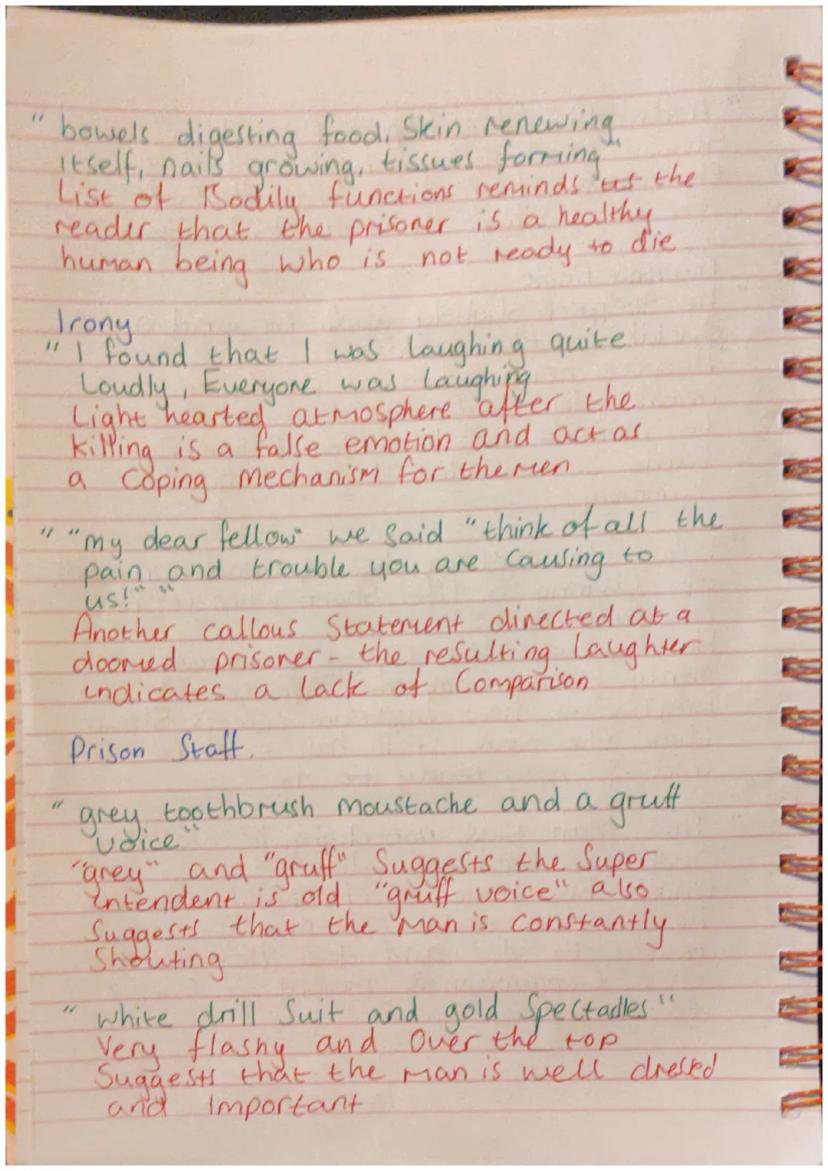 "bowels digesting food, Skin renewing
itself, nails growing, tissues forming"
List of Bodily functions reminds the
reader that the prisoner is a healthy
human being who is not ready to die
Irony
"I found that I was laughing quite
Loudly, Everyone was laughing
Light hearted atmosphere after the
killing is a false emotion and act as
a coping mechanism for the men
" "my dear fellow" we said "think of all the
pain and trouble you are causing to
us!" "
Another callous Statement directed at a
doomed prisoner - the resulting laughter
indicates a lack of Comparison
Prison Staff.
"grey toothbrush moustache and a gruff
voice"
"grey" and "gruff" Suggests the Super
intendent is old "gruff voice" also
Suggests that the man is constantly
Shouting
"white drill Suit and gold Spectacles"
Very flashy and Over the top
Suggests that the man is well dressed
and important